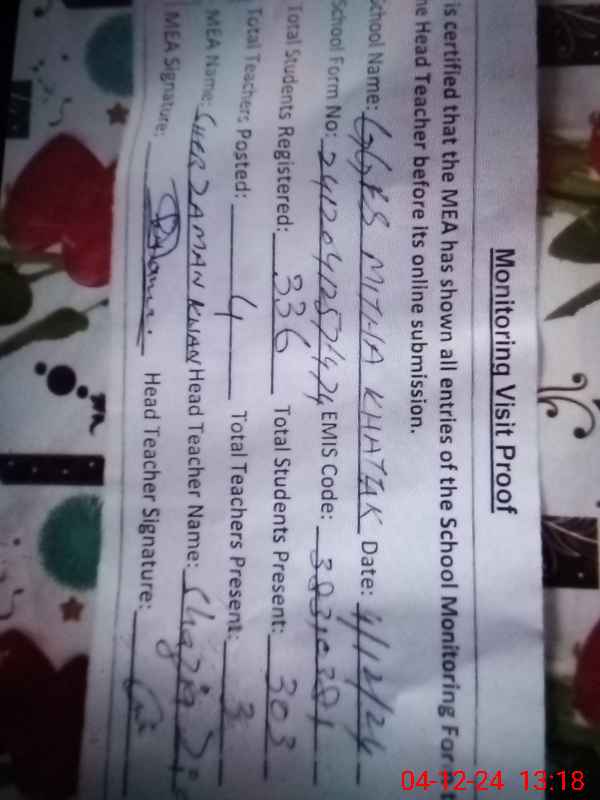 Monitoring Visit Proof
is certified that the MEA has shown all entries of the School Monitoring Format
he Head Teacher before its online submission.
School Name: GGPS MITHA KHATTAK Date: 4/12/24
School Form No: EMIS Code:
Total Students Registered: 336 Total Students Present: 303
Total Teachers Posted: 4 Total Teachers Present: 3
MEA Name: SHER ZAMAN KHAN Head Teacher Name: Shazia
MEA Signature: Head Teacher Signature:
04-12-24 13:18